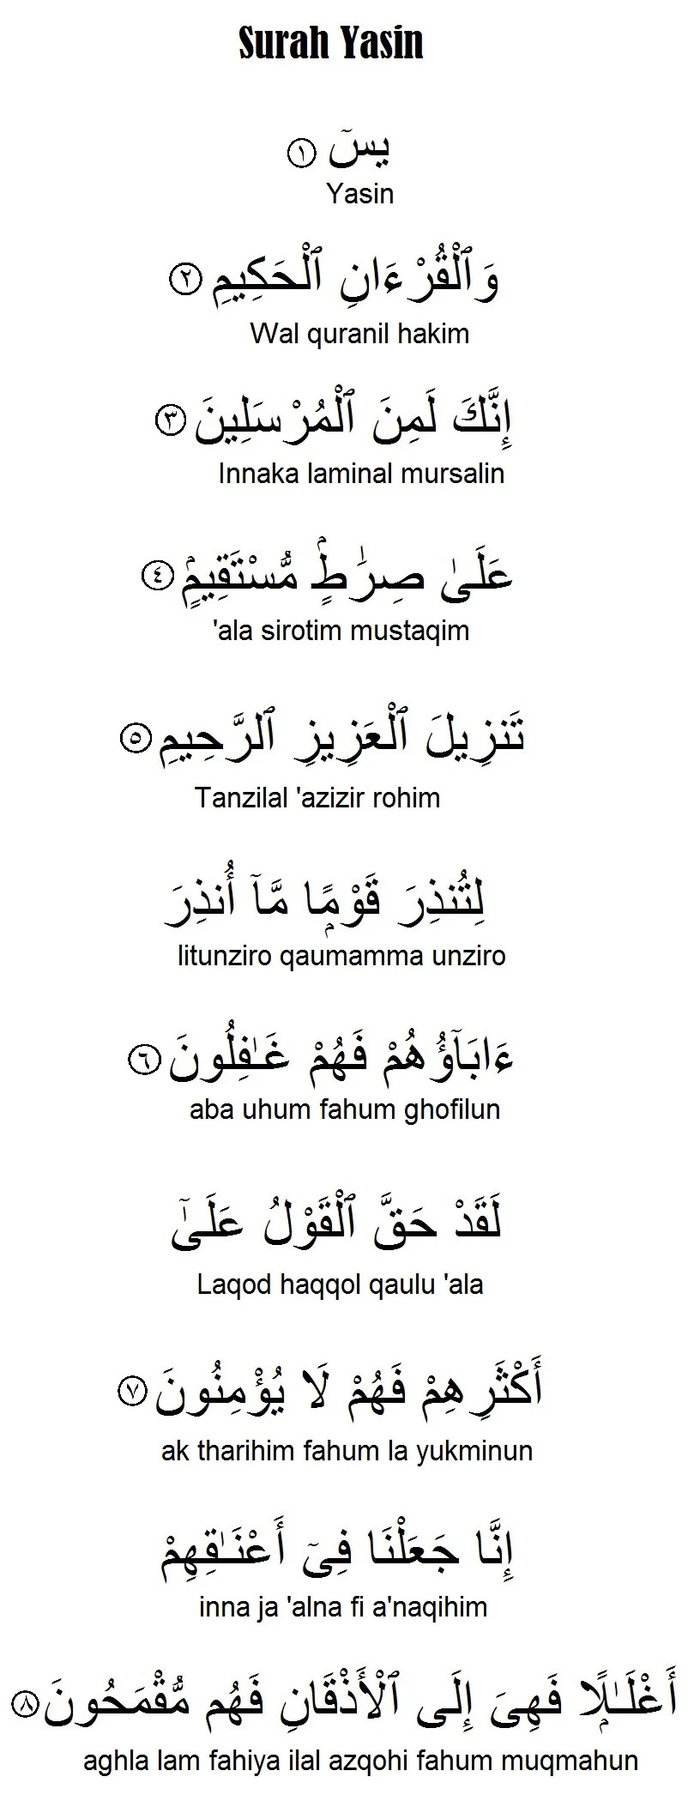 Surah Yasin
يسٓ ١
Yasin
وَٱلْقُرْءَانِ ٱلْحَكِيمِ ٢
Wal quranil hakim
إِنَّكَ لَمِنَ ٱلْمُرْسَلِينَ ٣
Innaka laminal mursalin
عَلَىٰ صِرَٰطٍۢ مُّسْتَقِيمٍۢ ٤
'ala sirotim mustaqim
تَنزِيلَ ٱلْعَزِيزِ ٱلرَّحِيمِ ٥
Tanzilal 'azizir rohim
لِتُنذِرَ قَوْمًۭا مَّآ أُنذِرَ
litunziro qaumamma unziro
ءَابَآؤُهُمْ فَهُمْ غَـٰفِلُونَ ٦
aba uhum fahum ghofilun
لَقَدْ حَقَّ ٱلْقَوْلُ عَلَىٰٓ
Laqod haqqol qaulu 'ala
أَكْثَرِهِمْ فَهُمْ لَا يُؤْمِنُونَ ٧
ak tharihim fahum la yukminun
إِنَّا جَعَلْنَا فِىٓ أَعْنَـٰقِهِمْ
inna ja 'alna fi a'naqihim
أَغْلَـٰلًۭا فَهِىَ إِلَى ٱلْأَذْقَانِ فَهُم مُّقْمَحُونَ ٨
aghla lam fahiya ilal azqohi fahum muqmahun